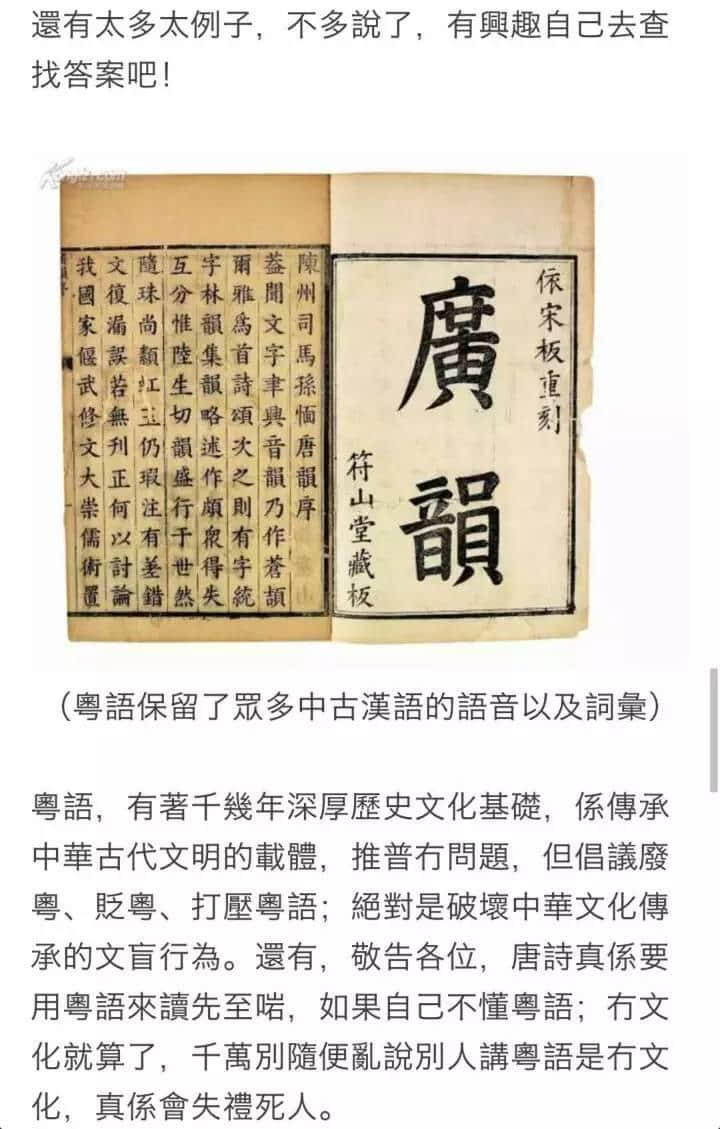 還有太多太例子，不多說了，有興趣自己去查
找答案吧！
依宋板重刻
廣韻
符山堂藏板
陳州司馬孫愐唐韻序
葢聞文字聿興音韻乃作蒼頡
爾雅為首詩頌次之則有字統
字林韻集韻略述作頗眾得失
互分惟陸生切韻盛行于世然
隨珠尚纇虹玉仍瑕注有差錯
文復漏誤若無刊正何以討論
我國家偃武修文大崇儒術置
（粵語保留了眾多中古漢語的語音以及詞彙）
粵語，有著千幾年深厚歷史文化基礎，係傳承
中華古代文明的載體，推普冇問題，但倡議廢
粵、貶粵、打壓粵語；絕對是破壞中華文化傳
承的文盲行為。還有，敬告各位，唐詩真係要
用粵語來讀先至啱，如果自己不懂粵語；冇文
化就算了，千萬別隨便亂說別人講粵語是冇文
化，真係會失禮死人。